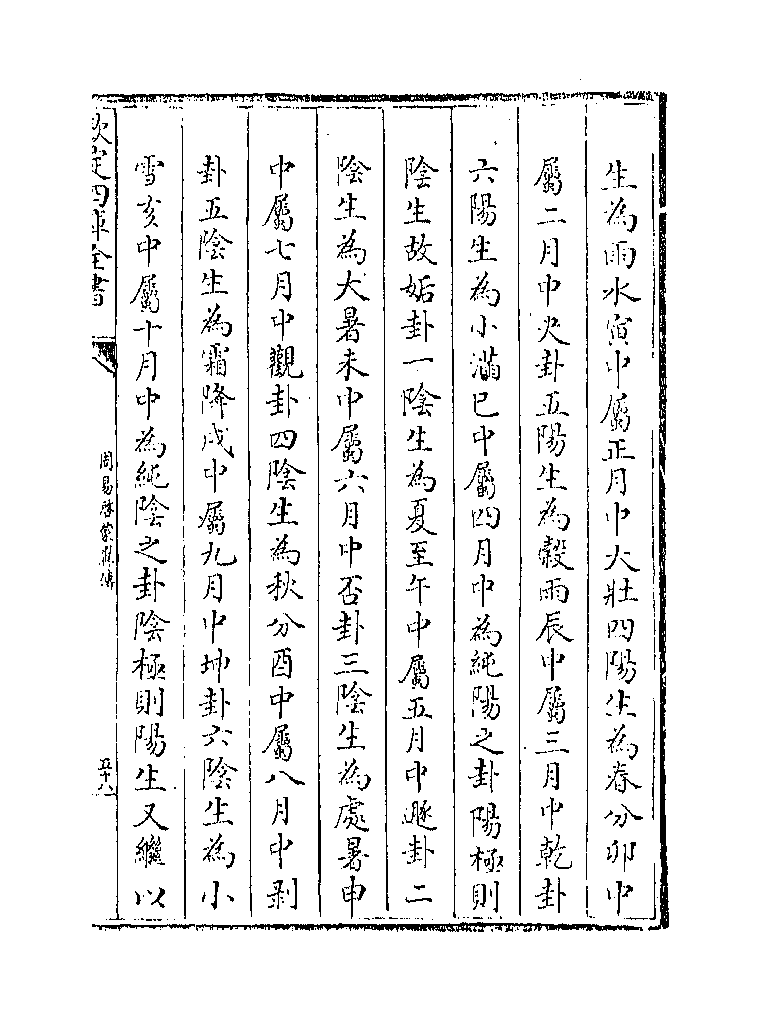 生為雨水寅中屬正月中大壯四陽生為春分卯中
屬二月中夬卦五陽生為穀雨辰中屬三月中乾卦
六陽生為小滿巳中屬四月中為純陽之卦陽極則
陰生故姤卦一陰生為夏至午中屬五月中遯卦二
陰生為大暑未中屬六月中否卦三陰生為處暑申
中屬七月中觀卦四陰生為秋分酉中屬八月中剥
卦五陰生為霜降戌中屬九月中坤卦六陰生為小
雪亥中屬十月中為純陰之卦陰極則陽生又繼以
欽定四庫全書
周易啓蒙翼傳
五十八